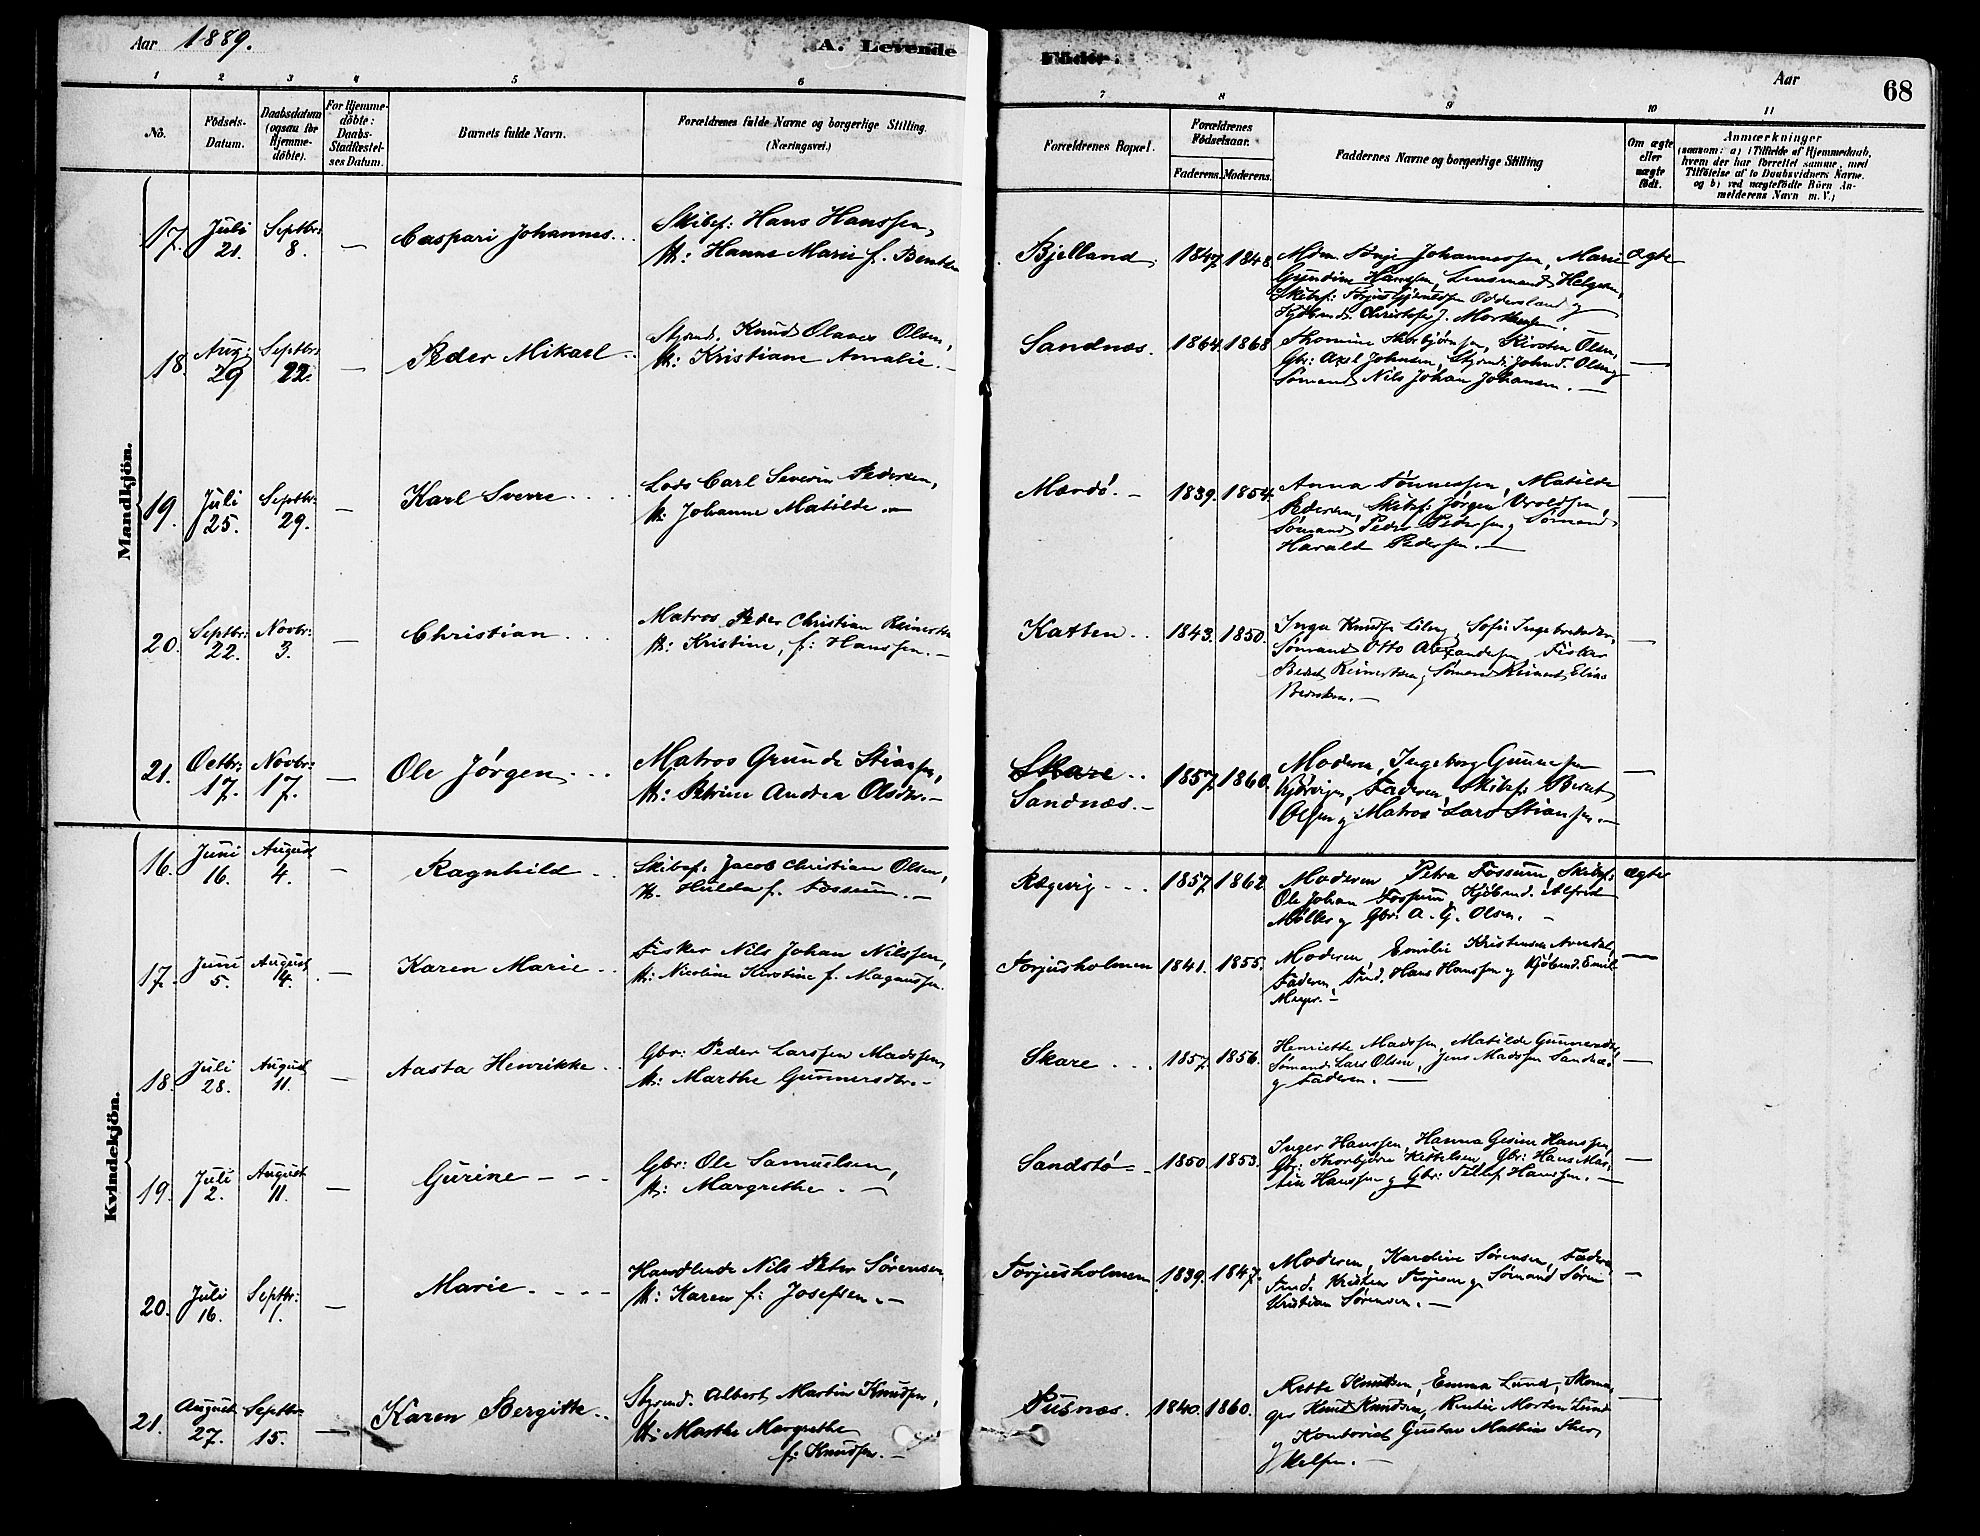 Aar 1889.
A. Levende
Födte.
Aar
68
1 2 3 4 5 6 7 8 9 10 11
No.
Födsels-Datum.
Daabsdatum (ogsaa for Hjemme-döbte).
For Hjemme-döbte: Daabs-Stadfæstel-ses Datum.
Barnets fulde Navn.
Forældrenes fulde Navne og borgerlige Stilling. (Næringsvei.)
Forældrenes Bopæl.
Forældrenes Födselsaar.
Faderens. Moderens.
Faddernes Navne og borgerlige Stilling
Om ægte eller uægte födt.
Anmærkninger
(saasom: a) i Tilfælde af Hjemmedaab, hvem der har forrettet samme, med Tilföielse af to Daabsvidners Navne. og b) ved uægtefödte Börn An-melderens Navn m. V.)
Mandkjön.
17. Juli 21. Septbr: 8. — Caspari Johannes. Skibsf: Hans Hanssen, H: Hanne Marie f. Bentsen Bjelland. 1847. 1848. Mdm. Tonje Johannessen, Marie Gundine Hanssen, Lensmand Helgesen, Skibsf: Oddersland og Kjøbmd. Christoffer J. Mortensen. Ægte
18. Aug: 29 Septbr: 22. — Peder Mikael Styrmd. Knud Olaves Olsen, H: Kristiane Amalie. — Sandnæs. 1864. 1868 Thomine Thorbjørnsen, Kirsten Olsen, Gbr: Axel Johnsen, Styrmd: John T. Olsen og Sømand Nils Johan Johansen. — —
19. Juli 25. Septbr: 29. — Karl Sverre Lods Carl Severin Pedersen, H: Johanne Matilde. — Mærdö. — 1839. 1854. Anna Tønnessen, Matilde Pedersen, Skibsf: Jørgen Vroldsen, Sømand Peder Pedersen og Sømand Harald Pedersen. — —
20. Septbr: 22. Novbr: 3. — Christian Matros Peder Christian Reinertsen H: Kristine, f: Hanssen. — Katten. 1843. 1850. Inga Knudsen Sofie Ingebretsdtr, Sømand Otto Alexandersen Fisker Reinertsen, Sømand Reinert Elias Berntsen. — —
21. Octbr: 17. Novbr: 17. — Ole Jørgen Matros Grunde Stiansen, H: Petrine Andrea Olsdtr. — Skare Sandnæs. — 1857. 1860. Moderen, Ingeborg Gunnesen Faderen, Skibsf: Bernt Olsen og Matros Lars Stiansen. — —
Kvindekjön.
16. Juni 16. August 4. — Ragnhild Skibsf: Jacob Christian Olsen, H: Hulda f. Fossum. — Rægevig 1857. 1862 Moderen Petra Fossum, Skibsf: Ole Johan Fossum, Kjøbmd. Alfred Møller og Gbr: A. G. Olsen. — ægte
17. Juni 5. August 14. — Karen Marie Fisker Nils Johan Nilssen, H: Nicoline Kirstine f. Magnussen. Torjusholmen 1841. 1855. Moderen, Emilie Kristensen Arendal, Faderen, Hans Hanssen og Kjøbmd. Emil Meyer. — —
18. Juli 28. August 11. — Aasta Henrikke Gbr: Peder Larssen Madssen, H: Marthe Gunnersdtr. — Skare 1857. 1856. Henriette Madssen, Matilde Gunnersdtr, Sømand Lars Olsen, Jens Madssen Sandnæs og Faderen. — —
19. Juli 2. August 11. — Gurine Gbr: Ole Samuelsen, H: Margrethe. — Sandstö 1850. 1853. Inger Hanssen, Hanna Gesine Hanssen, Gbr: Thorbjørn Kittelsen, Gbr: Hans Martin Hanssen og Gbr: Tellef Hanssen. — —
20. Juli 16. Septbr: 1. — Marie Handlende Nils Peter Sørensen H: Karen f: Josefsen. — Torjusholmen 1839. 1847. Moderen, Karoline Sørensen, Faderen Kristen Terjesen og Sømand Søren Kristian Sørensen. — —
21. August 27. Septbr: 15. — Karen Bergitte Styrmd. Albert Martin Knudsen, H: Marthe Margrethe f: Knudsen. — Pusnæs. 1840. 1860. Mette Knudsen, Emma Lund, Knud Knudsen, Morten Lund og Kontorist Gustav Mathias —